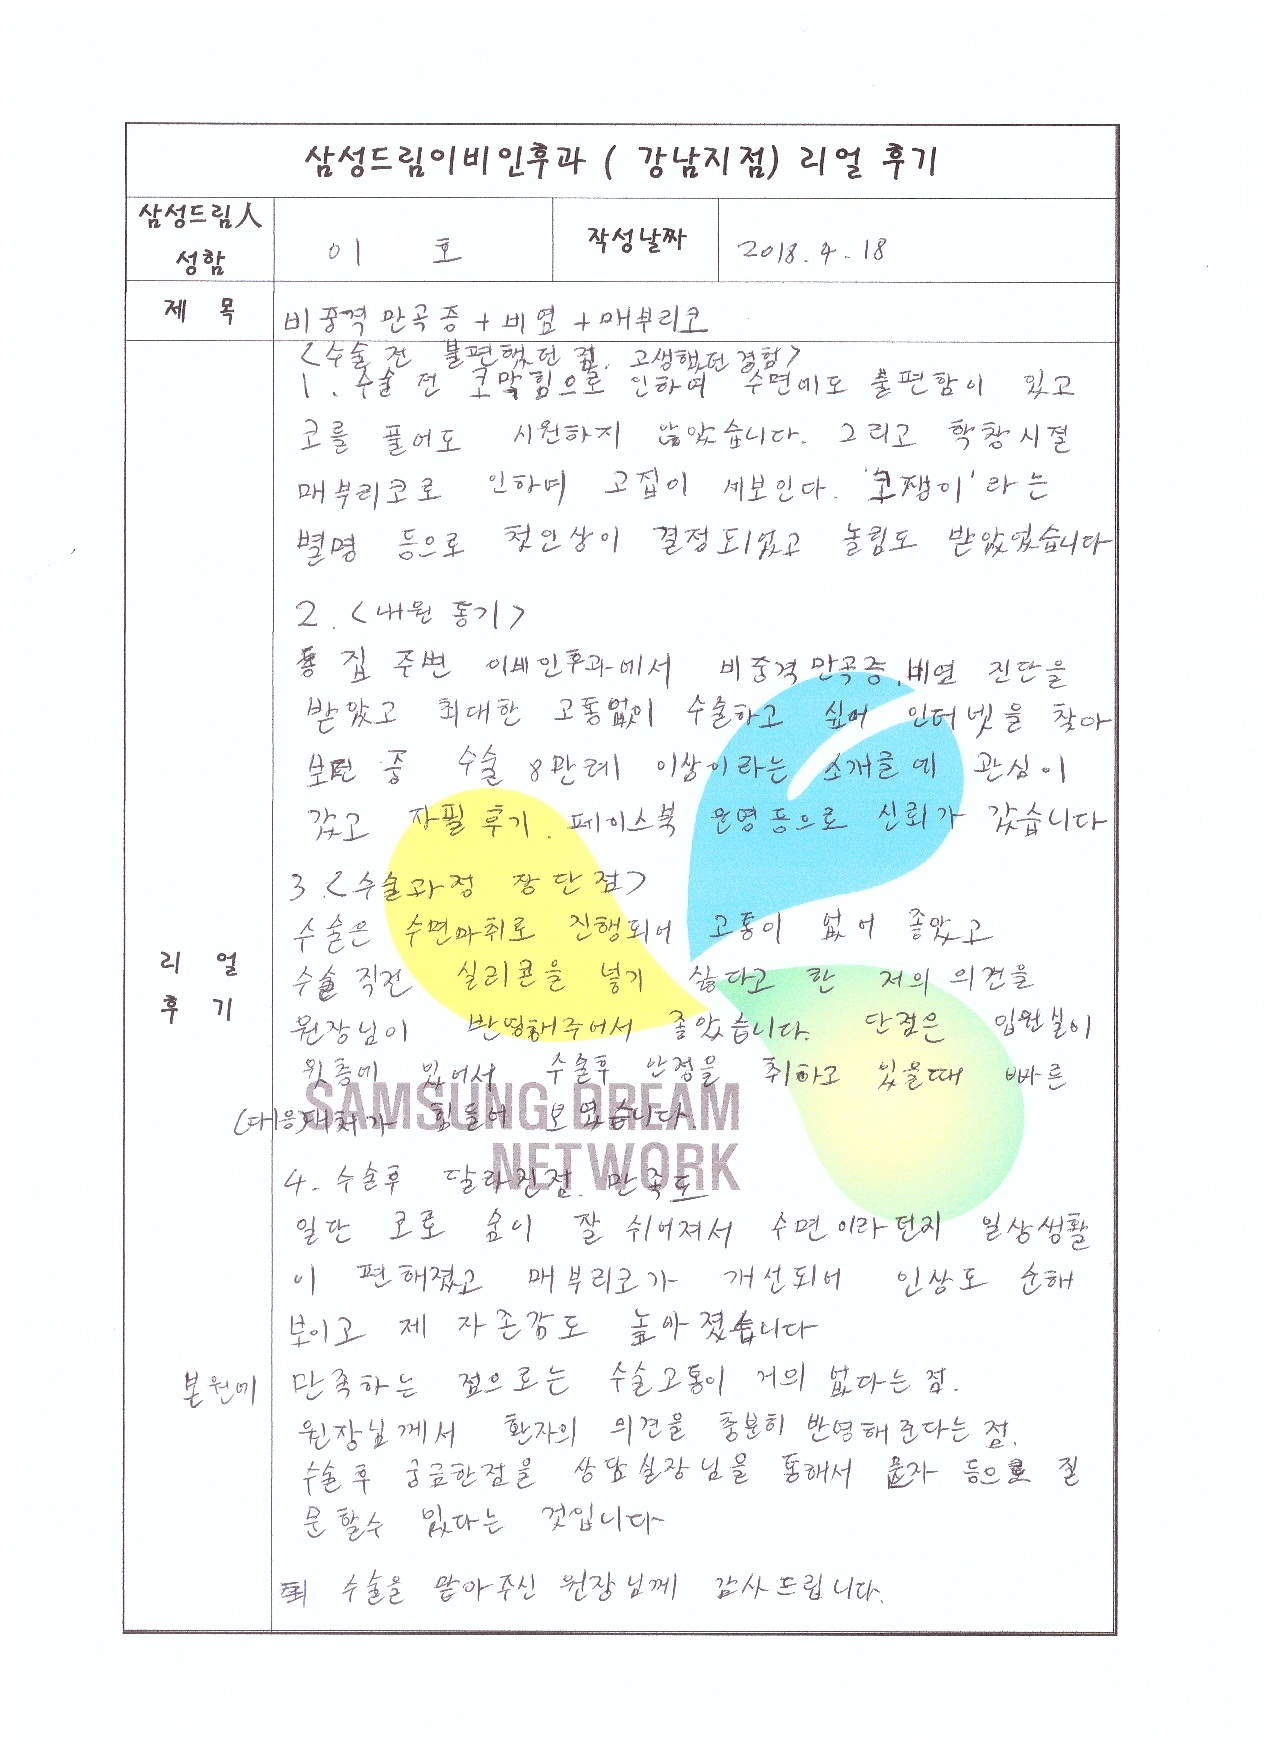 삼성드림이비인후과 ( 강남지점) 리얼 후기
삼성드림人
성함
이 호
작성날짜
2018.4.18
제 목
비중격 만곡증 + 비염 + 매부리코
<수술 전 불편했던 점. 고생했던 경험>
1. 수술 전 코막힘으로 인하여 수면에도 불편함이 있고
코를 풀어도 시원하지 않았습니다. 그리고 학창시절
매부리코로 인하여 고집이 세보인다. '코쟁이' 라는
별명 등으로 첫인상이 결정되었고 놀림도 받았었습니다
2. <내원 동기>
집 주변 이비인후과에서 비중격 만곡증, 비염 진단을
받았고 최대한 고통없이 수술하고 싶어 인터넷을 찾아
보던 중 수술 8만례 이상이라는 소개글에 관심이
갔고 자필 후기. 페이스북 운영등으로 신뢰가 갔습니다
3. <수술과정 장단점>
수술은 수면마취로 진행되어 고통이 없어 좋았고
수술 직전 실리콘을 넣기 싫다고 한 저의 의견을
원장님이 반영해주어서 좋았습니다. 단점은 입원실이
윗층에 있어서 수술후 안정을 취하고 있을때 빠른
(대응)대처가 힘들어 보였습니다.
SAMSUNG DREAM
NETWORK
4. 수술후 달라진점. 만족도
일단 코로 숨이 잘 쉬어져서 수면이라던지 일상생활
이 편해졌고 매부리코가 개선되어 인상도 순해
보이고 제 자존감도 높아졌습니다
리 얼
후 기
본원에 만족하는 점으로는 수술고통이 거의 없다는 점.
원장님께서 환자의 의견을 충분히 반영해준다는 점.
수술후 궁금한점을 상담실장님을 통해서 문자 등으로 질
문할수 있다는 것입니다
수술을 맡아주신 원장님께 감사드립니다.